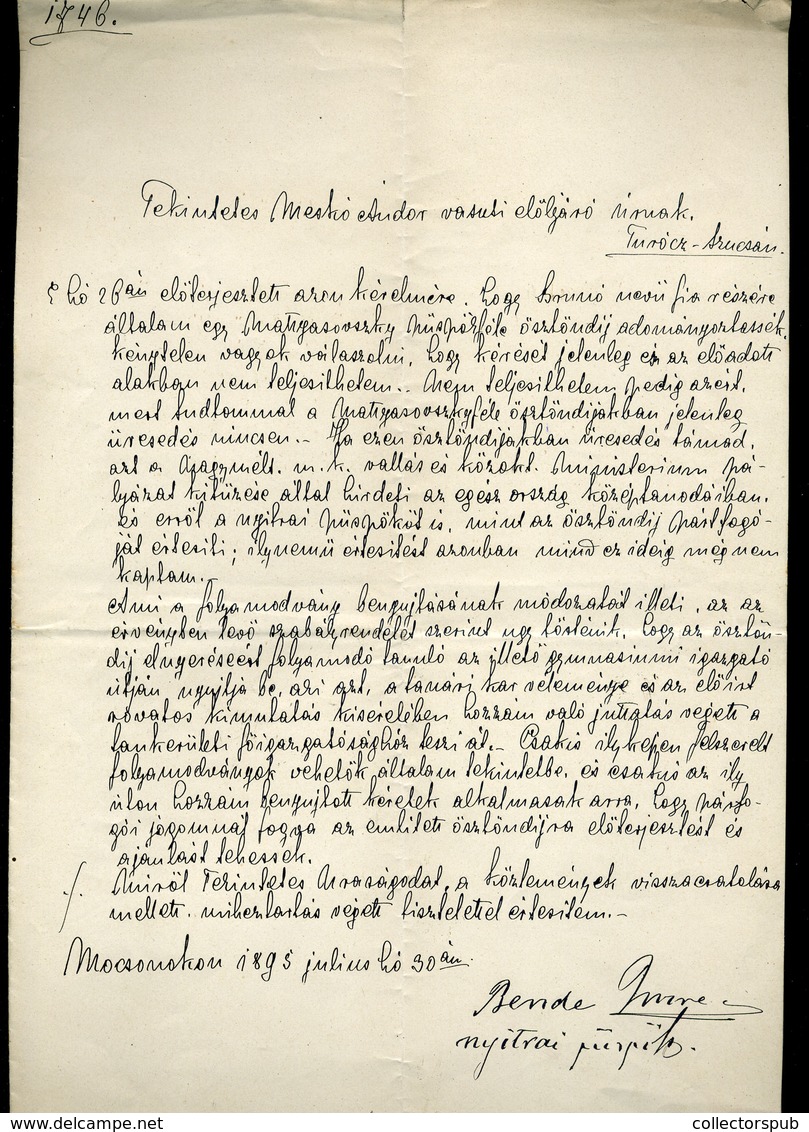 1746.
Tekintetes Meskó Andor vasuti előljáró úrnak.
Turócz-Szucsán.
E hó 26án előterjesztett azon kérelmére, hogy Brunó nevü fia részére
általam egy Matyasovszky püspökféle ösztöndij adományoztassék,
kénytelen vagyok válaszolni, hogy kérését jelenleg és az előadott
alakban nem teljesithetem. Nem teljesithetem pedig azért,
mert tudtommal a Matyasovszkyféle ösztöndijakban jelenleg
üresedés nincsen.- Ha ezen ösztöndijakban üresedés támad,
azt a Nagymélt. m. k. vallás és közokt. Ministerium pá-
lyázat kitüzése által hirdeti az egész ország középtanodáiban,
és erről a nyitrai püspököt is, mint az ösztöndij pártfogó-
ját értesiti; ilynemü értesitést azonban mind ez ideig még nem
kaptam.-
Ami a folyamodvány benyujtásának módozatait illeti, az az
érvényben levő szabályrendelet szerint ugy történik, hogy az ösztön-
dij elnyeréseért folyamodó tanuló az illető gymnasiumi igazgató
útján nyujtja be, aki azt, a tanári kar véleménye és az előirt
rovatos kimutatás kiséretében hozzám való juttatás végett a
tankerületi főigazgatósághoz teszi át.- Csakis ilyképen felszerelt
folyamodványok vehetők általam tekintetbe, és csakis az ily
úton hozzám benyujtott kérelek alkalmasak arra, hogy párfo-
gói jogomnál fogva az emlitett ösztöndijra előterjesztést és
ajánlást tehessek.
./. Miről Tekintetes Uraságodat, a közlemények visszacsatolása
mellett, miheztartás végett tisztelettel értesitem.-
Mocsonokon 1895 julius hó 30án.
Bende Imre
nyitrai püspök.
delcampe.net
collectorspub